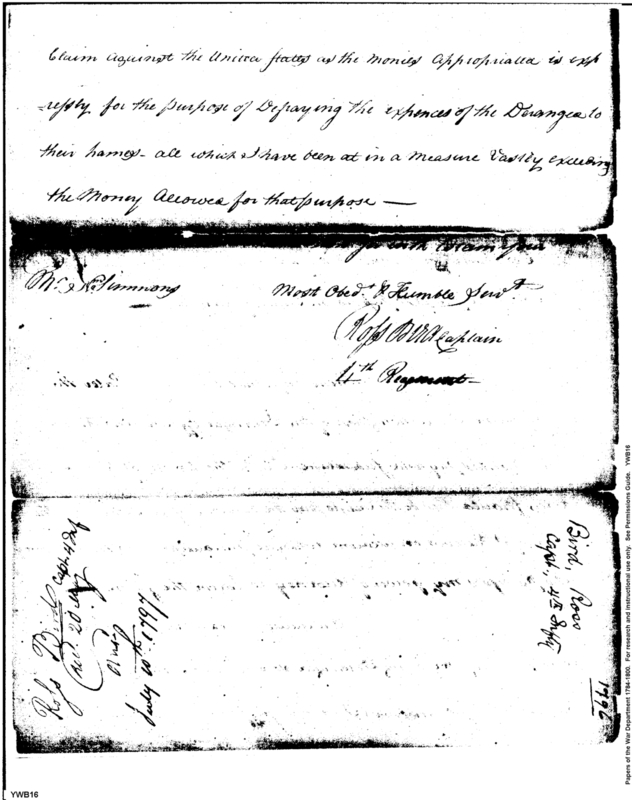 Claim against the United States as the monies appropriated is exp
=ressly for the purpose of Defraying the expences of the Deranged to
their homes - all which I have been at in a measure Vastly exceeding
the Money Allowed for that purpose —
with
Mr Simmons
Most Obedt & Humble Servt
Ross Bird Captain
4th Regiment
Ross Bird Capt. 4 Inf
20
Ansd
July 10th 1797
Bird, Ross
Capt, 4th Infty
1796
Papers of the War Department 1784-1800. For research and instructional use only. See Permissions Guide. YWB16
YWB16